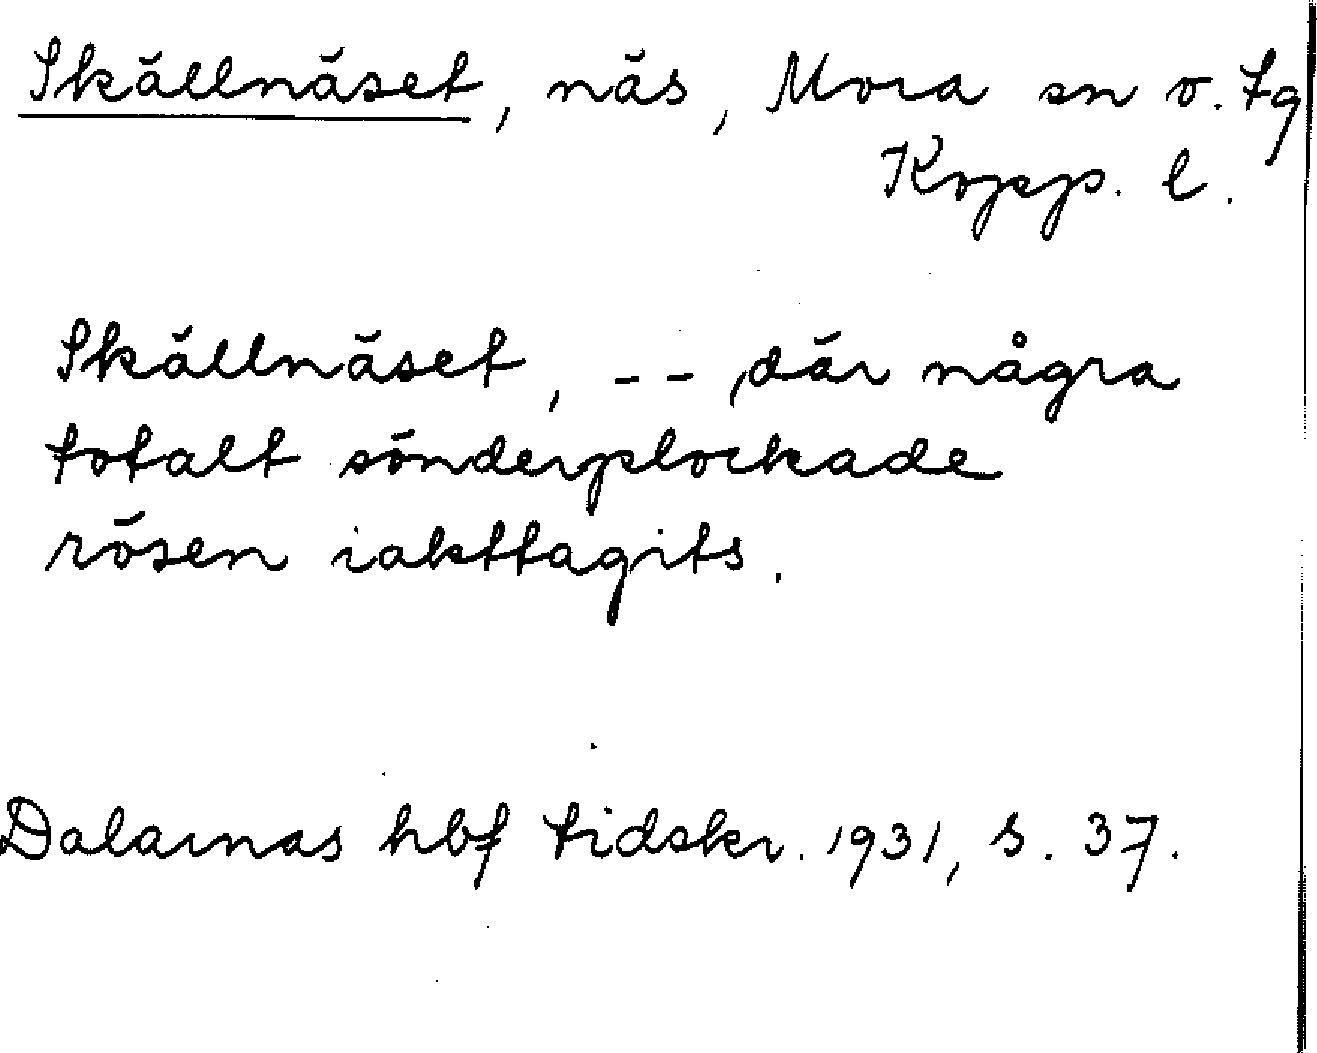 Skällnäset, näs, Mora sn o. tg
Kopp. l.
Skällnäset, -- , där några
totalt sönderplockade
rösen iakttagits.
Dalarnas hbf tidskr. 1931, s. 37.